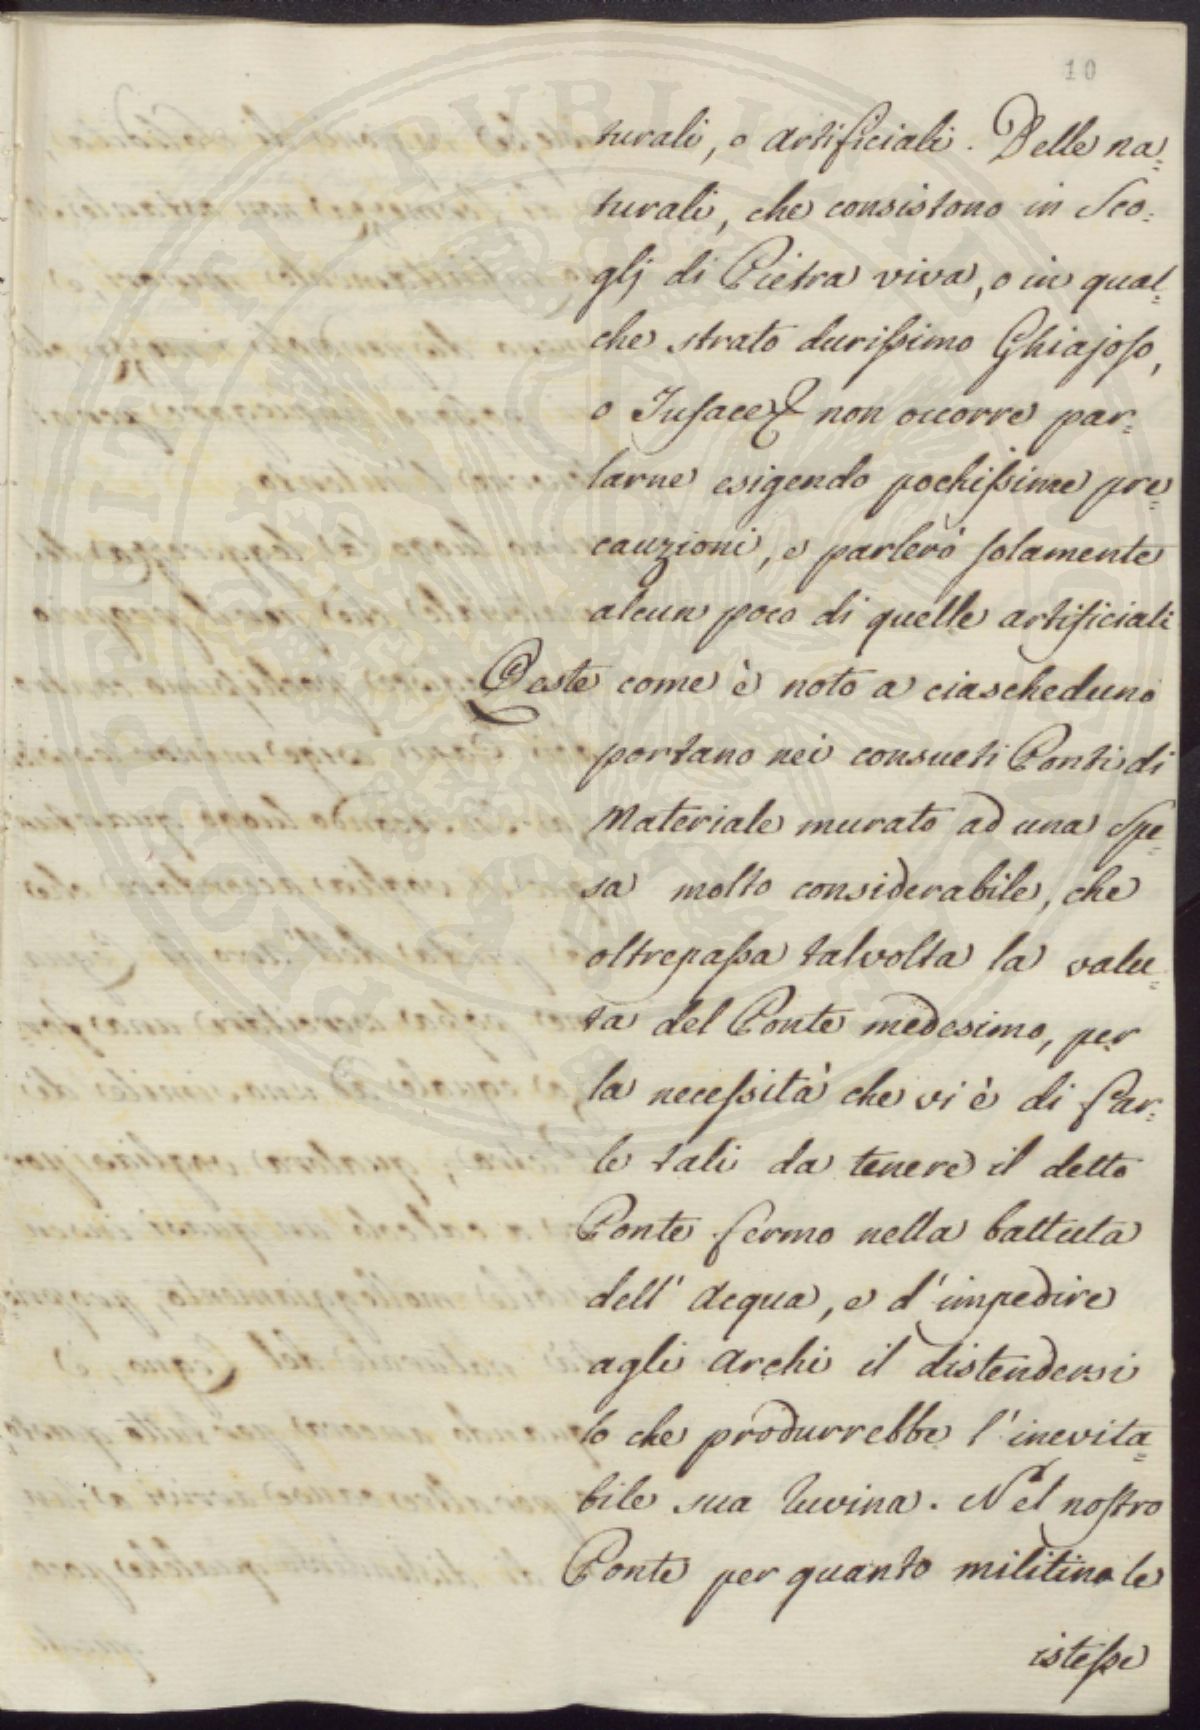 10
turali, o artificiali. Delle na=
turali, che consistono in Sco=
glj di Pietra viva, o in qual=
che strato durissimo Ghiajoso,
o Tufaceo non occorre par=
larne esigendo pochissime pre=
cauzioni, e parlerò solamente
alcun poco di quelle artificiali
Queste come è noto a ciascheduno
portano nei consueti Ponti di
Materiale murato ad una Spe=
sa molto considerabile, che
oltrepassa talvolta la valu=
ta del Ponte medesimo, per
la necessità che vi è di far=
le tali da tenere il detto
Ponte fermo nella battuta
dell' Acqua, e d'impedire
agli Archi il distendersi
lo che produrrebbe l'inevita=
bile sua ruvina. Nel nostro
Ponte per quanto militino le
istesse